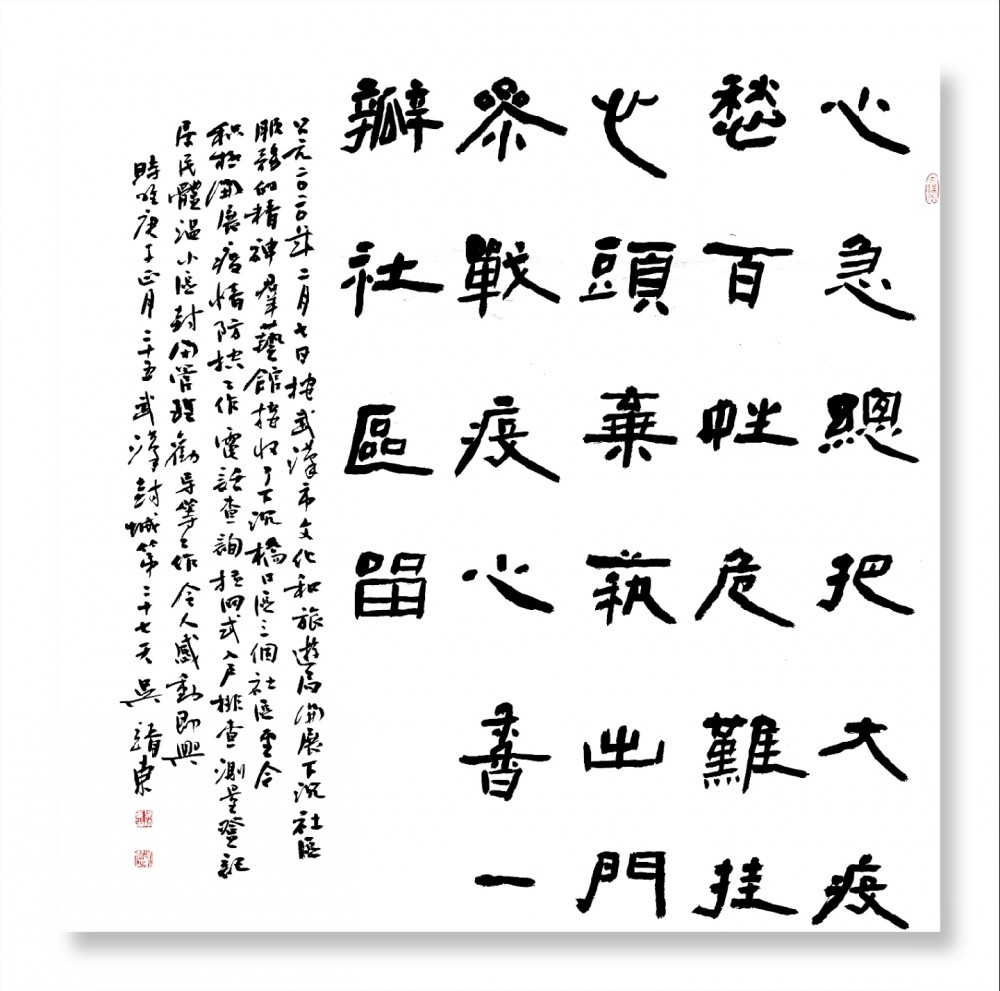 心急總把大疫
愁百姓危難挂
心頭棄蓺出門
參戰疫心書一
瓣社區留
公元二〇二〇年二月七日按武漢市文化和旅遊局開展下沉社區
服務的精神羣藝館接收了下沉橋口區三個社區至今
积極開展疫情防控工作電話查詢拉网式入戶排查測量登記
居民體温小區封闭管理勸导等工作令人感動即興
時唯庚子正月二十五武漢封城第二十七天吳靖東